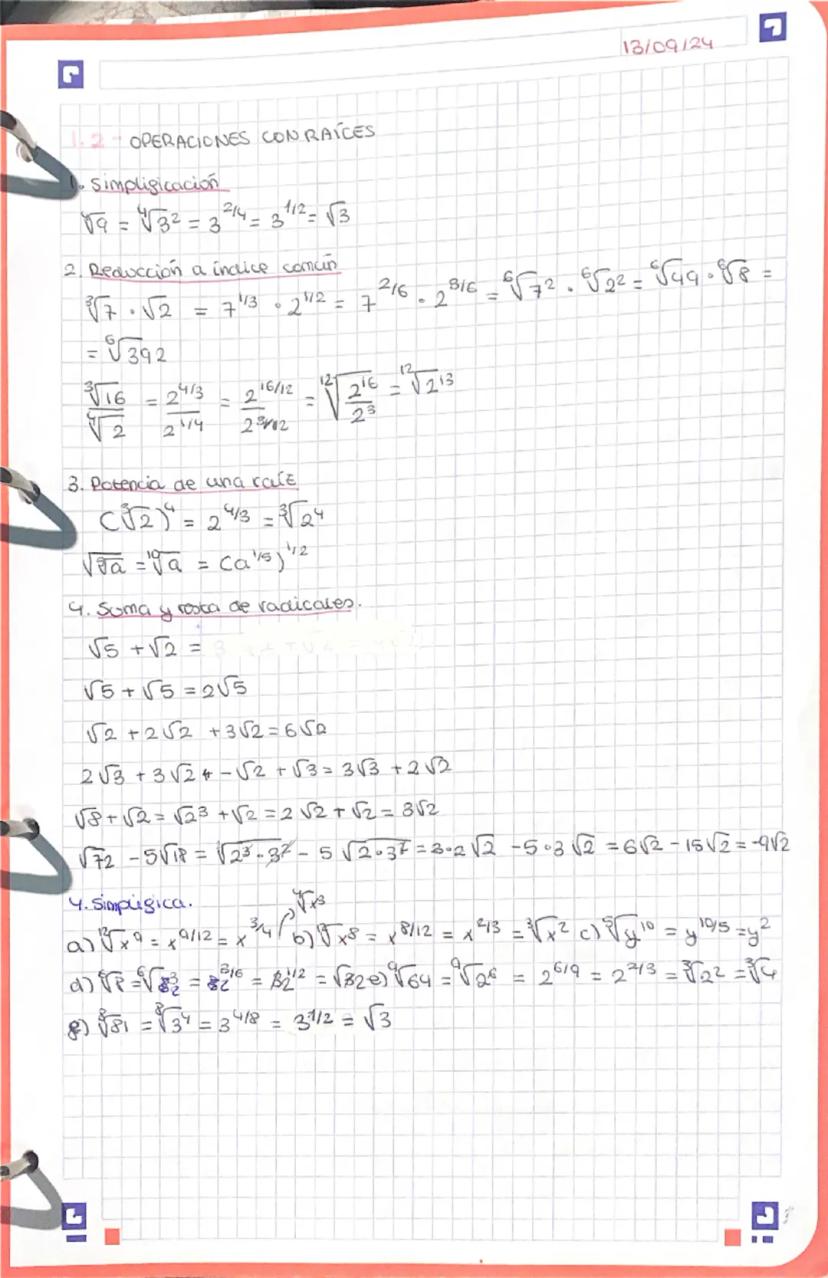 13/09/24
1.2 - OPERACIONES CON RAÍCES
1. Simplificación
⁴√9 = ⁴√3² = 3^2/4 = 3^1/2 = √3
2. Reducción a índice común
³√7 · √2 = 7^1/3 · 2^1/2 = 7^2/6 · 2^3/6 = ⁶√7² · ⁶√2² = ⁶√49 · ⁶√8 =
= ⁶√392
³√16 / ⁴√2 = 2^4/3 / 2^1/4 = 2^16/12 / 2^3/12 = ¹²√(2^16 / 2^3) = ¹²√2^13
3. Potencia de una raíz
(³√2)^4 = 2^4/3 = ³√2^4
√⁵√a = ¹⁰√a = (a^1/5)^1/2
4. Suma y resta de radicales.
√5 + √2 =
√5 + √5 = 2√5
√2 + 2√2 + 3√2 = 6√2
2√3 + 3√2 + - √2 + √3 = 3√3 + 2√2
√8 + √2 = √2³ + √2 = 2√2 + √2 = 3√2
√72 - 5√18 = √2³·3² - 5√2·3² = 3·2√2 - 5·3√2 = 6√2 - 15√2 = -9√2
4. Simplifica.
a) ¹²√x^9 = x^9/12 = x^3/4 ⁴√x³ b) ¹²√x^8 = x^8/12 = x^2/3 = ³√x² c) ⁵√y^10 = y^10/5 = y²
d) ⁶√8 = ⁶√2³ = 2^3/6 = 2^1/2 = √2 e) ⁹√64 = ⁹√2^6 = 2^6/9 = 2^2/3 = ³√2² = ³√4
f) ⁸√81 = ⁸√3^4 = 3^4/8 = 3^1/2 = √3